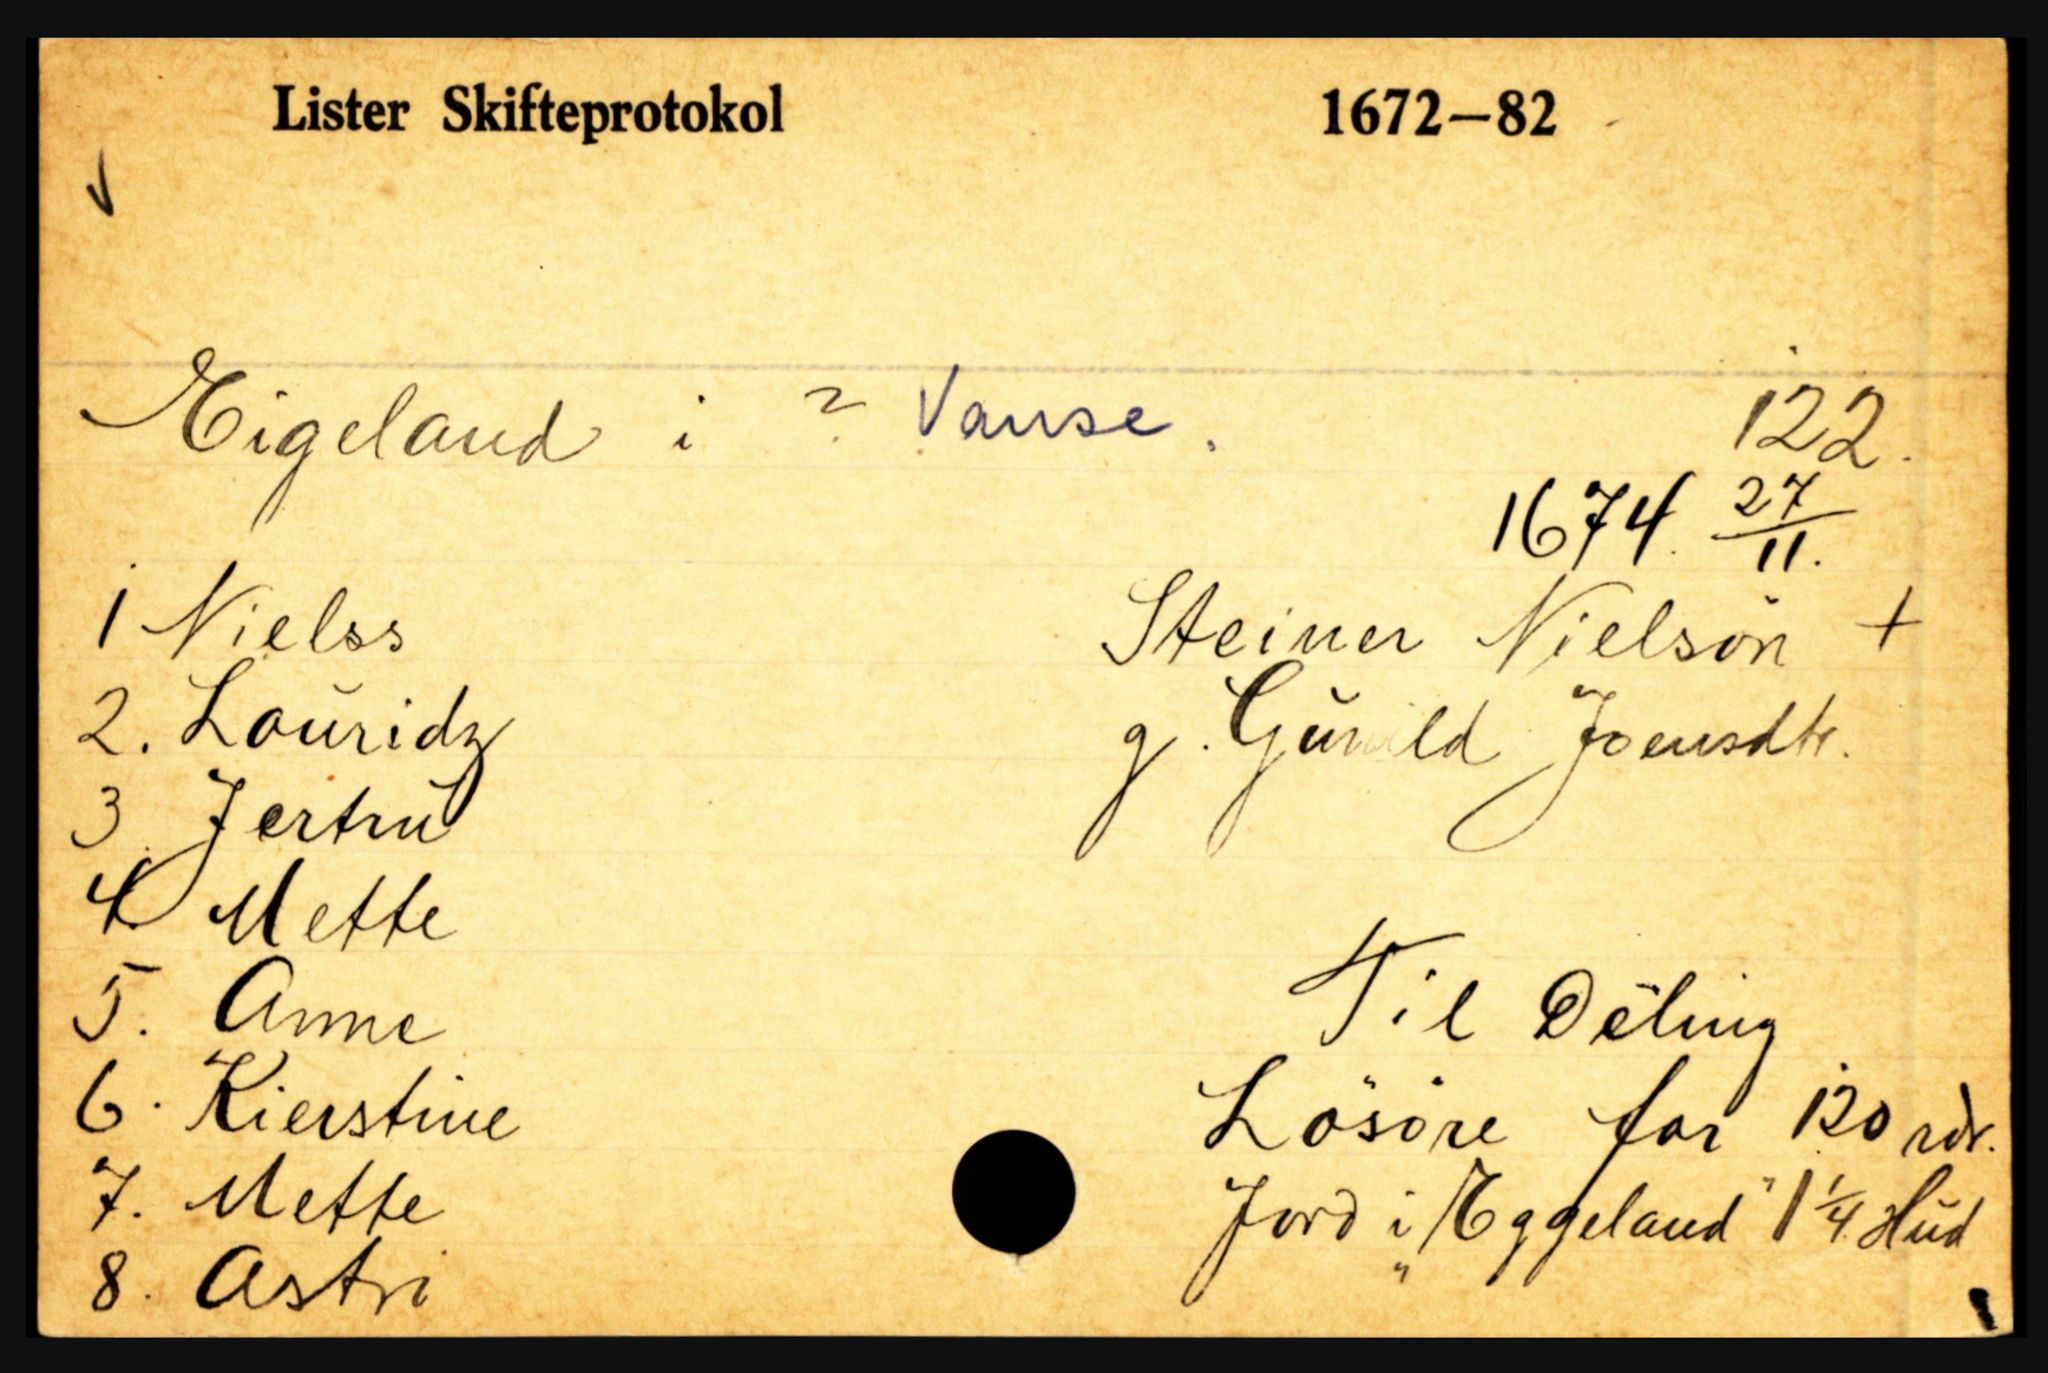 Lister Skifteprotokol 1672—82
Eigeland i ? Vanse. 122.
1674. 27/11.
1 Nielss
Steiner Nielsön +
2. Louridz
g. Gunild Joensdtr.
3. Jertru
4. Mette
5. Anne
Til Deling
6. Kierstine
Lösöre for 120 rdr.
7. Mette
Jord i „Eggeland" 1 1/4 Hud
8. Astri